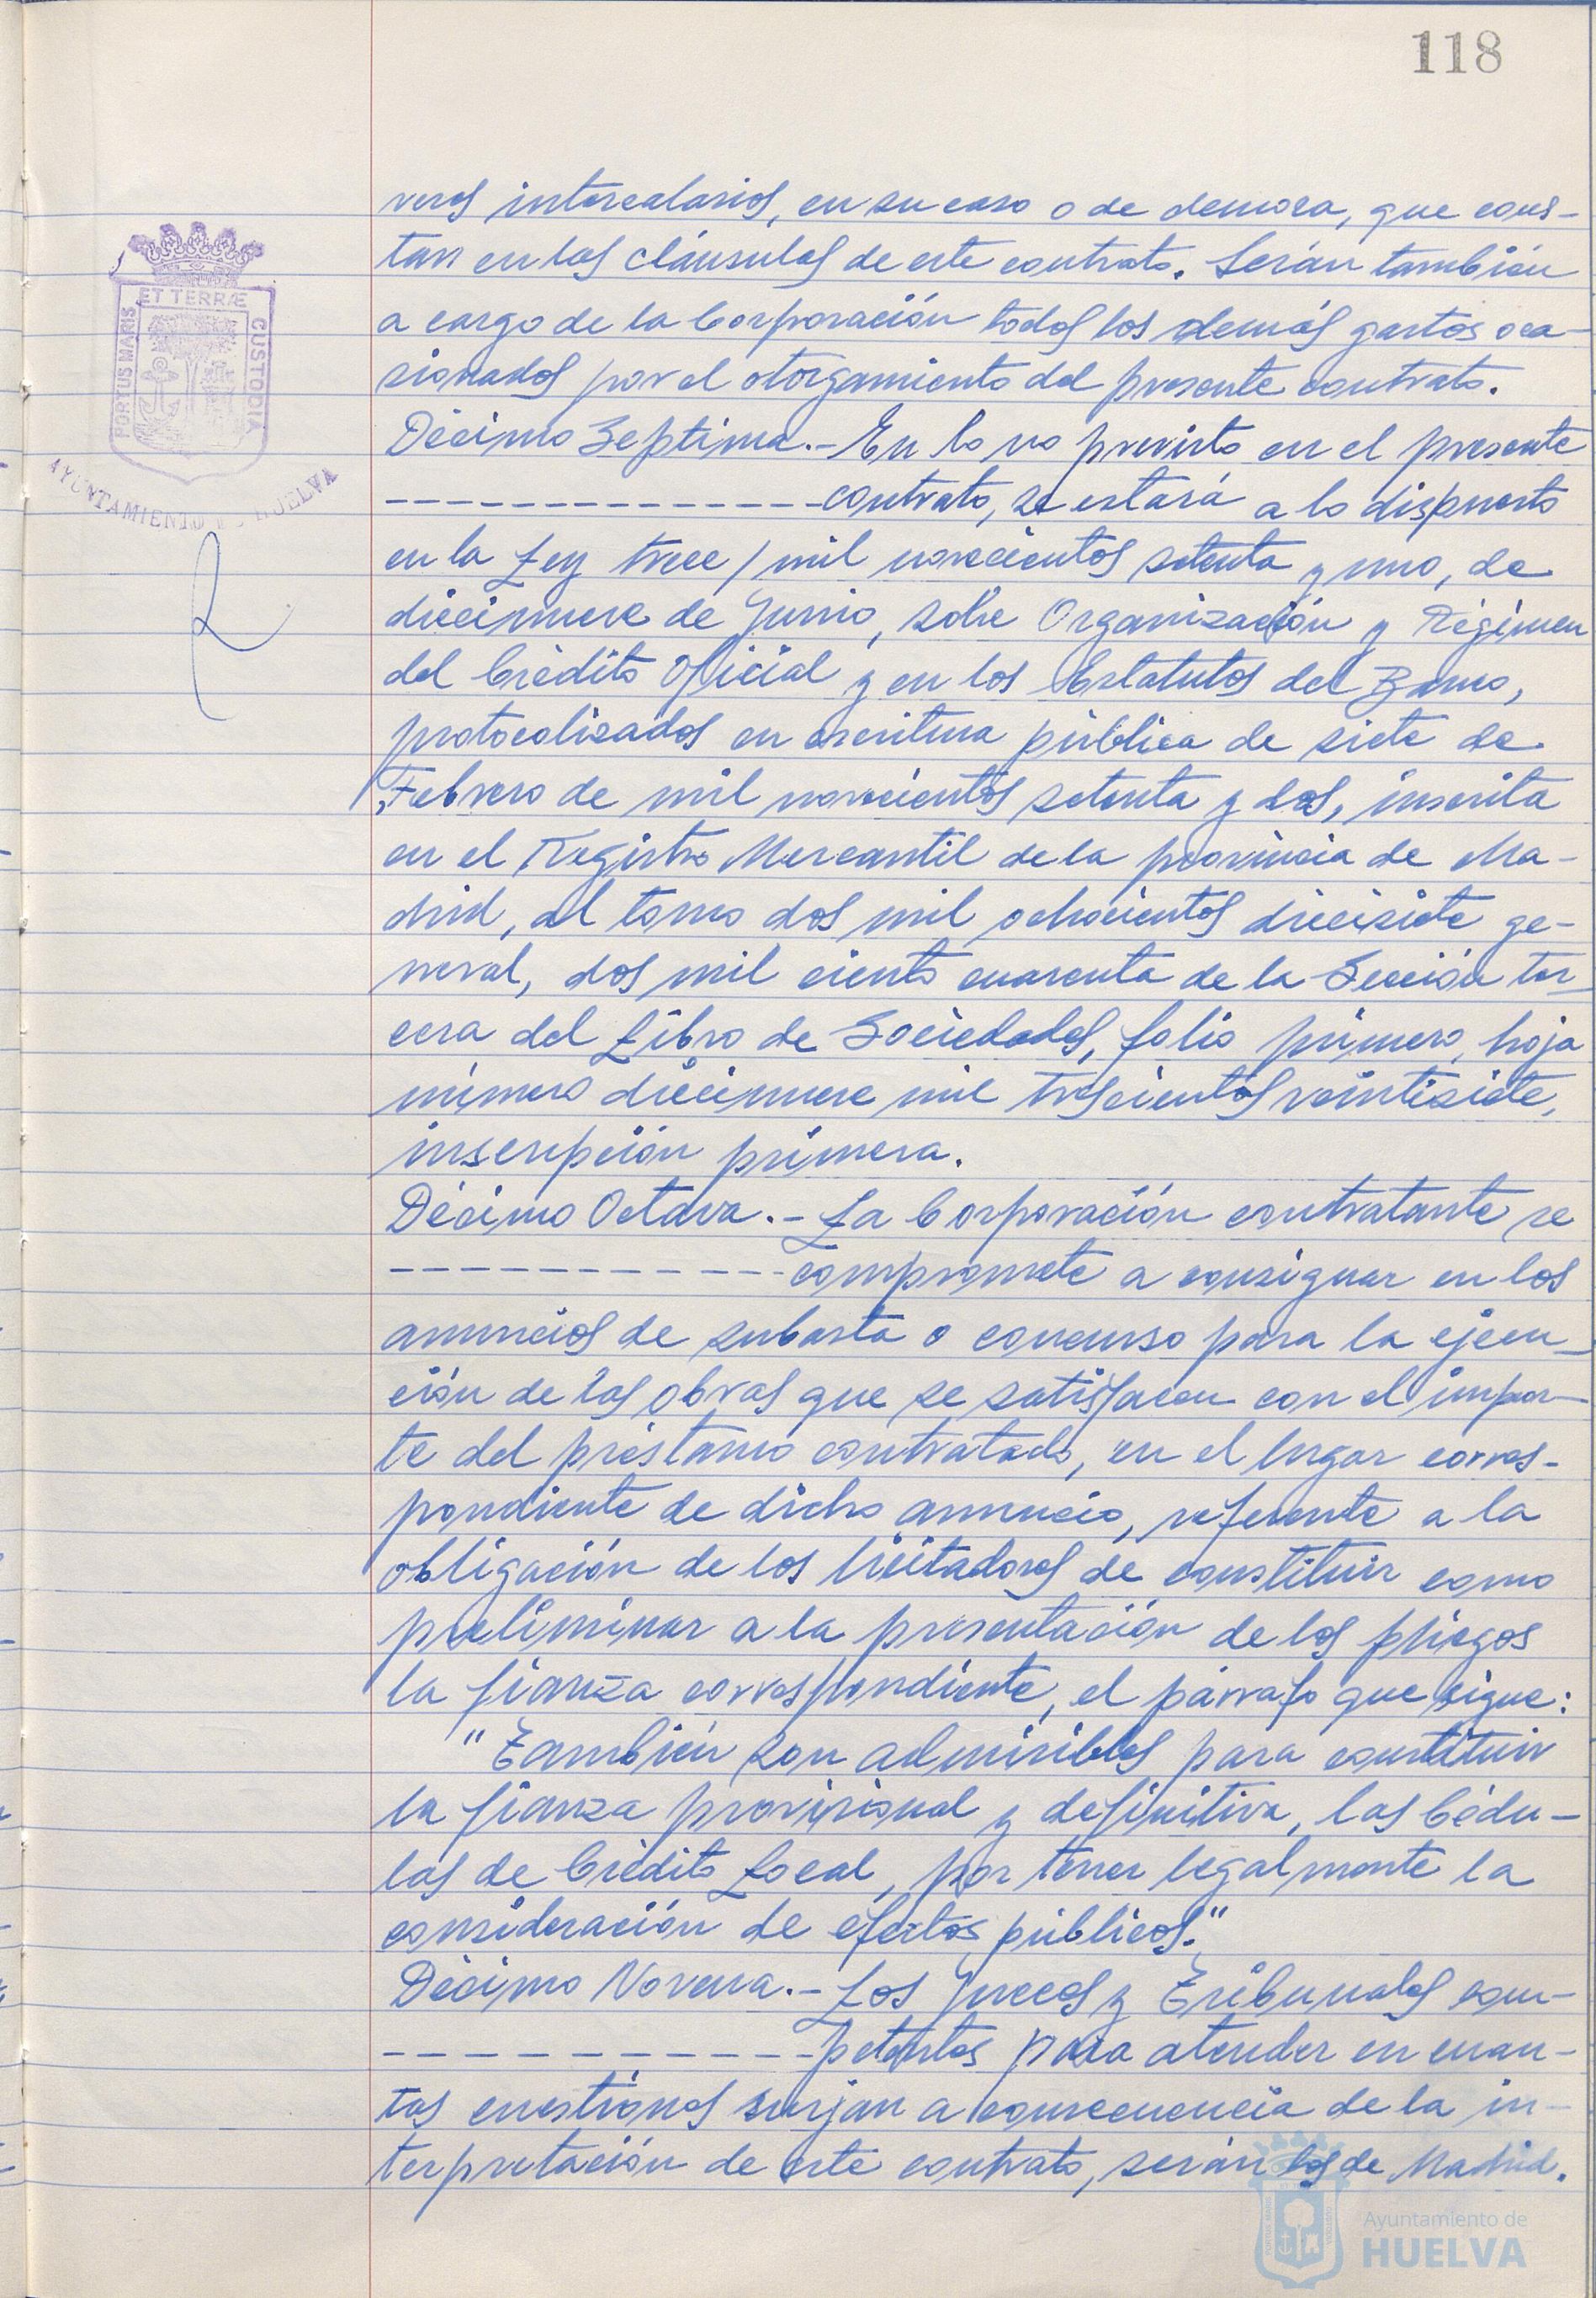 118
reses intercalarios, en su caso o de demora, que cons-
tan en las cláusulas de este contrato. Serán también
a cargo de la Corporación todos los demás gastos oca-
sionados por el otorgamiento del presente contrato.
Décimo Septima.- En lo no previsto en el presente
-------------- contrato, se estará a lo dispuesto
en la Ley trece/mil novecientos setenta y uno, de
diecinueve de Junio, sobre Organización y Régimen
del Crédito Oficial y en los Estatutos del Banco,
protocolizados en escritura pública de siete de
Febrero de mil novecientos setenta y dos, inscrita
en el Registro Mercantil de la provincia de Ma-
drid, al tomo dos mil ochocientos diecisiete ge-
neral, dos mil ciento cuarenta de la Sección ter-
cera del Libro de Sociedades, folio primero, hoja
número diecinueve mil trescientos veintisiete,
inscripción primera.
Décimo Octava.- La Corporación contratante se
------------ compromete a consignar en los
anuncios de subasta o concurso para la ejecu-
ción de las obras que se satisfacen con el impor-
te del préstamo contratado, en el lugar corres-
pondiente de dicho anuncio, referente a la
obligación de los licitadores de constituir como
preliminar a la presentación de los pliegos
la fianza correspondiente, el párrafo que sigue:
"También son admisibles para constituir
la fianza provisional y definitiva, las Cédu-
las de Crédito Local, por tener legalmente la
consideración de efectos públicos."
Décimo Novena.- Los Jueces y Tribunales com-
------------ petentes para atender en cuan-
tas cuestiones surjan a consecuencia de la in-
terpretación de este contrato, serán los de Madrid.
PORTUS MARIS
ET TERRÆ
CUSTODIA
AYUNTAMIENTO DE HUELVA
Ayuntamiento de
HUELVA